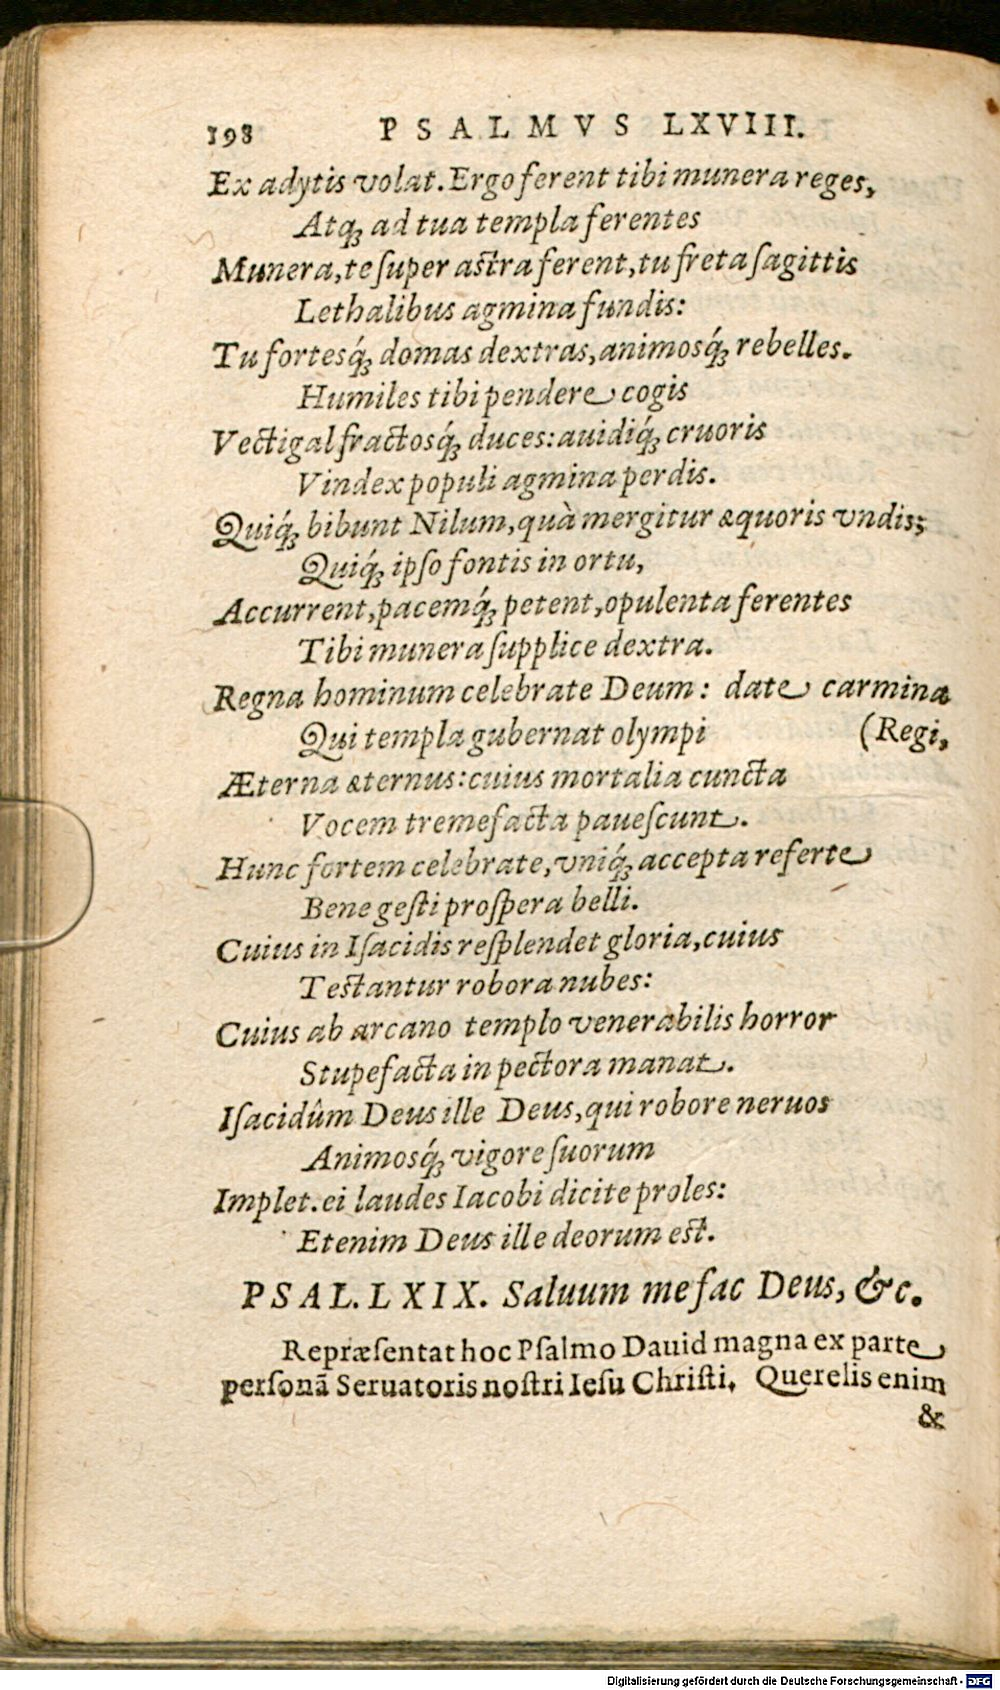 198 PSALMVS LXVIII.
Ex adytis volat. Ergo ferent tibi munera reges,
Atqꝫ ad tua templa ferentes
Munera, te ſuper aſtra ferent, tu freta ſagittis
Lethalibus agmina fundis:
Tu fortesq́ꝫ domas dextras, animosq́ꝫ rebelles.
Humiles tibi pendere cogis
Vectigal fractosq́ꝫ duces: auidiq́ꝫ cruoris
Vindex populi agmina perdis.
Quiq́ꝫ bibunt Nilum, quà mergitur æquoris vndis;
Quiq́ꝫ ipſo fontis in ortu,
Accurrent, pacemq́ꝫ petent, opulenta ferentes
Tibi munera ſupplice dextra.
Regna hominum celebrate Deum: date carmina
Qui templa gubernat olympi (Regi,
Æterna æternus: cuius mortalia cuncta
Vocem tremefacta paueſcunt.
Hunc fortem celebrate, vniq́ꝫ accepta referte
Bene geſti proſpera belli.
Cuius in Iſacidis reſplendet gloria, cuius
Teſtantur robora nubes:
Cuius ab arcano templo venerabilis horror
Stupefacta in pectora manat.
Iſacidûm Deus ille Deus, qui robore neruos
Animosq́ꝫ vigore ſuorum
Implet. ei laudes Iacobi dicite proles:
Etenim Deus ille deorum eſt.
PSAL. LXIX. Saluum me fac Deus, &c.
Repræſentat hoc Pſalmo Dauid magna ex parte
perſonã Seruatoris noſtri Ieſu Chriſti. Querelis enim
&
Digitalisierung gefördert durch die Deutsche Forschungsgemeinschaft - DFG